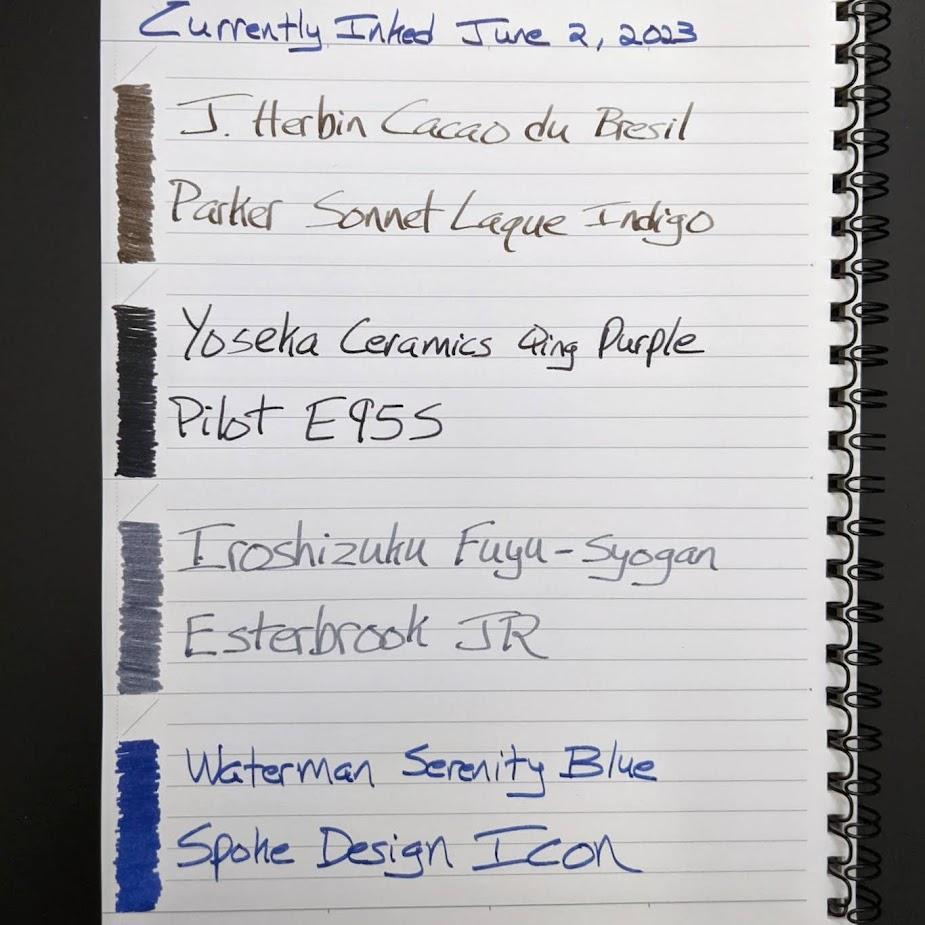 Currently Inked June 2, 2023
J. Herbin Cacao du Bresil
Parker Sonnet Laque Indigo
Yoseka Ceramics Qing Purple
Pilot E95S
Iroshizuku Fuyu-Syogan
Esterbrook JR
Waterman Serenity Blue
Spoke Design Icon